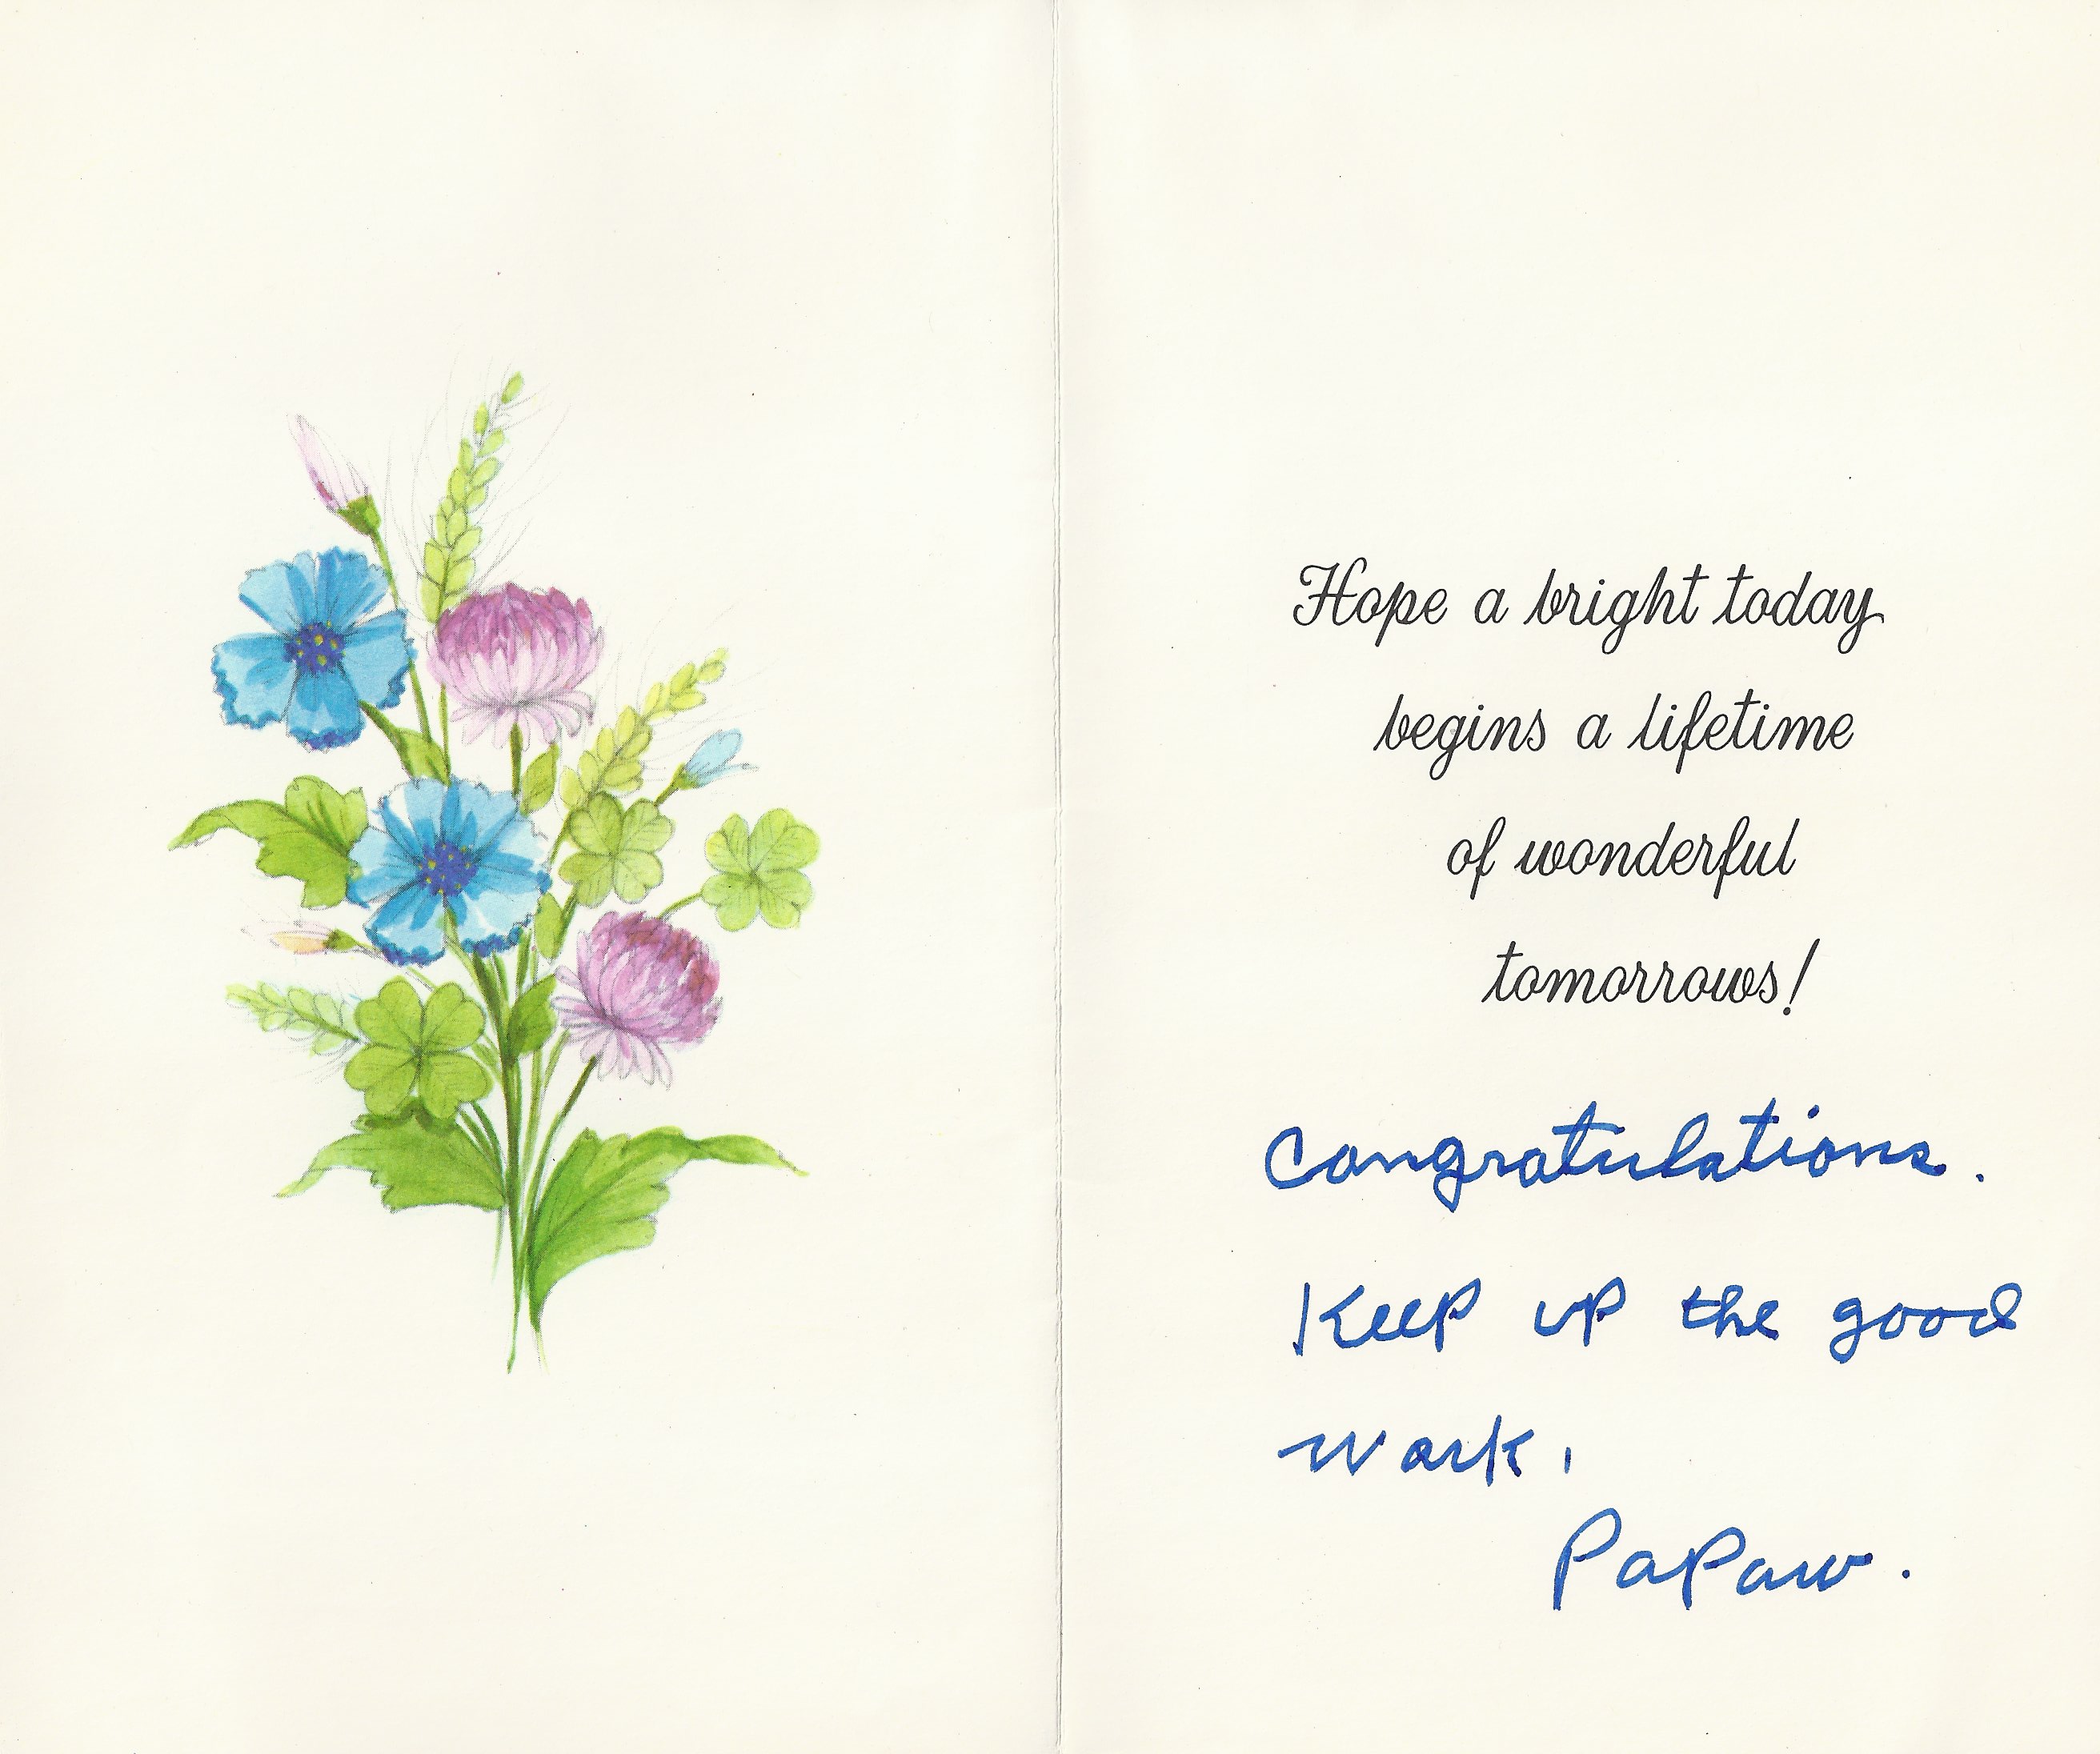 Hope a bright today
begins a lifetime
of wonderful
tomorrows!
Congratulations.
Keep up the good
work.
PaPaw.